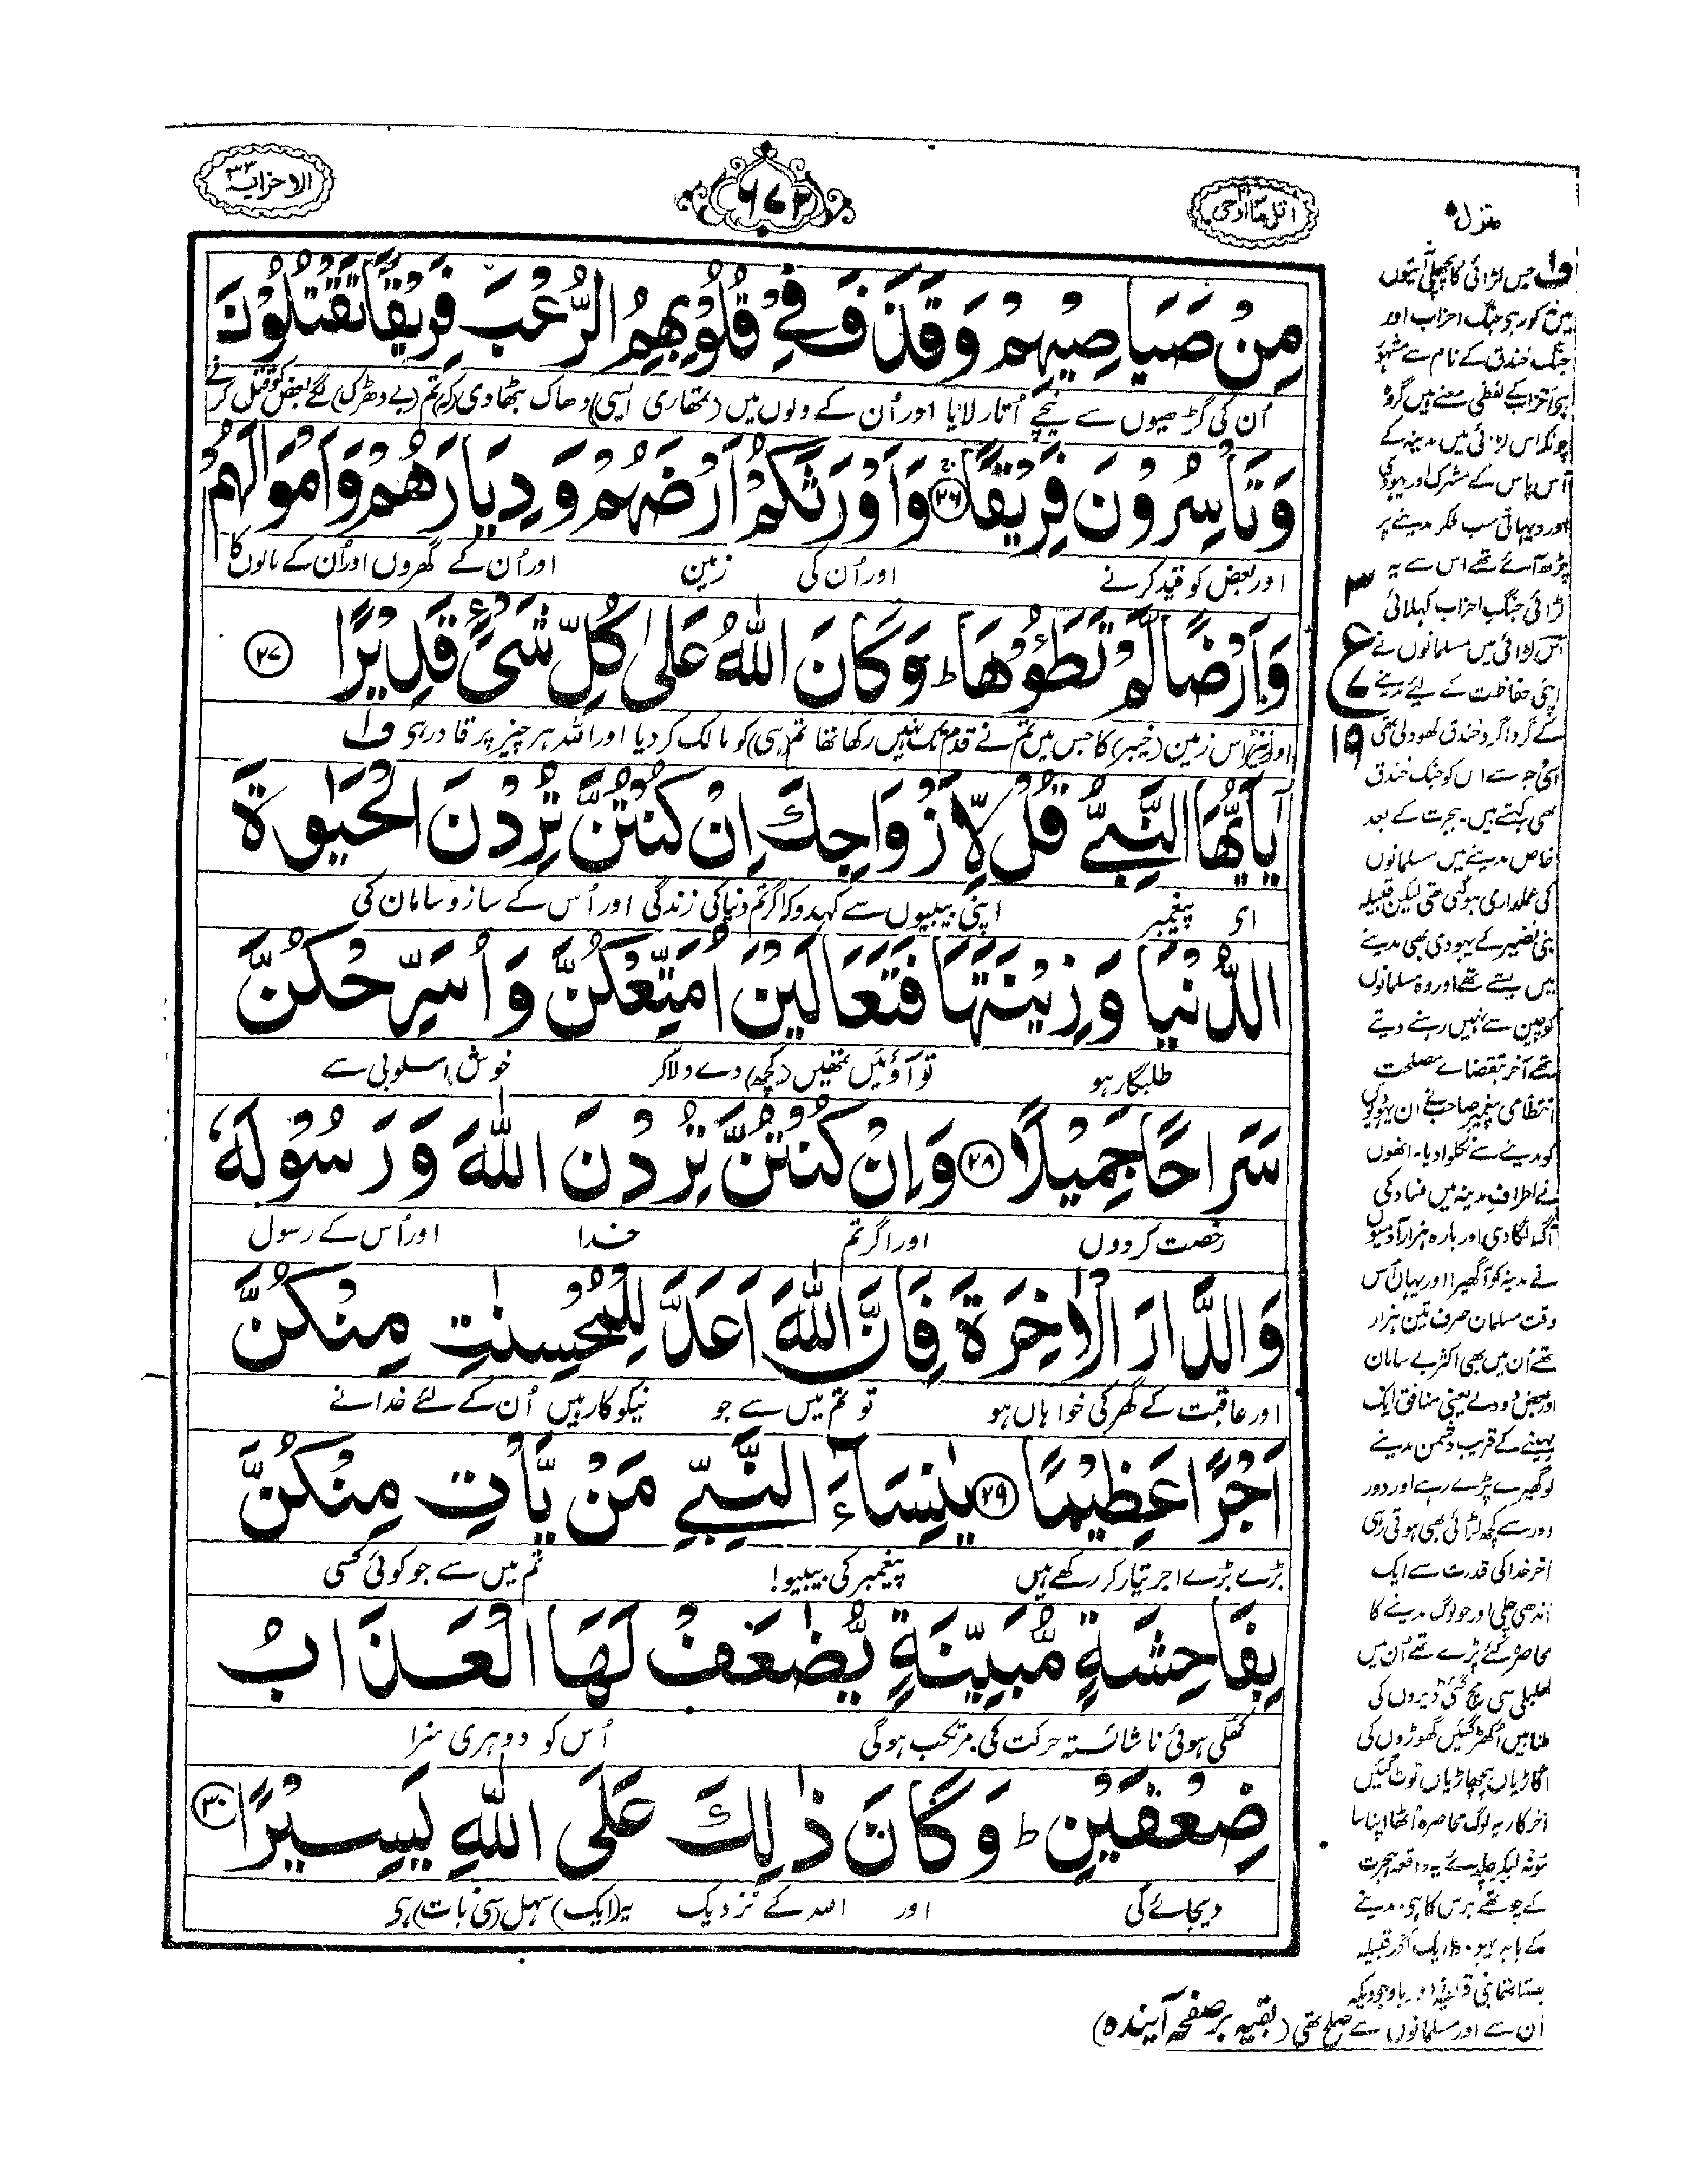 الاحزاب ۳۳
۶۷۲
اتل ما اوحی ۲۱
منزل ۵
مِنْ صَيَاصِيْهِمْ وَقَذَفَ فِيْ قُلُوْبِهِمُ الرُّعْبَ فَرِيْقًا تَقْتُلُوْنَ
اُن کی گڑھیوں سے نیچے اُتار لایا اور اُن کے دلوں میں (تمھاری ایسی) دھاک بٹھادی (کہ) تم (بے دھڑک) لگے بعض کو قتل کرنے
وَتَأْسِرُوْنَ فَرِيْقًا ﴿۲۶﴾ وَاَوْرَثَكُمْ اَرْضَهُمْ وَدِيَارَهُمْ وَاَمْوَالَهُمْ
اور بعض کو قید کرنے اور اُن کی زمین اور اُن کے گھروں اور اُن کے مالوں کا
وَاَرْضًا لَّمْ تَطَـُٔوْهَا ؕ وَكَانَ اللّٰهُ عَلٰى كُلِّ شَىْءٍ قَدِيْرًا ﴿۲۷﴾
اور (نیز) اس زمین (خیبر) کا جس میں تم نے قدم تک نہیں رکھا تھا تم (ہی) کو مالک کر دیا اور اللہ ہر چیز پر قادر ہی ف۱
يٰٓاَيُّهَا النَّبِيُّ قُلْ لِّاَزْوَاجِكَ اِنْ كُنْتُنَّ تُرِدْنَ الْحَيٰوةَ
ای پیغمبر اپنی بیبیوں سے کہدو کہ اگر تم دنیا کی زندگی اور اُس کے ساز و سامان کی
الدُّنْيَا وَزِيْنَتَهَا فَتَعَالَيْنَ اُمَتِّعْكُنَّ وَاُسَرِّحْكُنَّ
طلبگار ہو تو آؤ میں تمھیں (کچھ) دے دلا کر خوش اسلوبی سے
سَرَاحًا جَمِيْلًا ﴿۲۸﴾ وَاِنْ كُنْتُنَّ تُرِدْنَ اللّٰهَ وَرَسُوْلَهٗ
رخصت کر دوں اور اگر تم خدا اور اُس کے رسول
وَالدَّارَ الْاٰخِرَةَ فَاِنَّ اللّٰهَ اَعَدَّ لِلْمُحْسِنٰتِ مِنْكُنَّ
اور عاقبت کے گھر کی خواہاں ہو تو تم میں سے جو نیکو کار ہیں اُن کے لئے خدا نے
اَجْرًا عَظِيْمًا ﴿۲۹﴾ يٰنِسَآءَ النَّبِيِّ مَنْ يَّاْتِ مِنْكُنَّ
بڑے بڑے اجر تیار کر رکھے ہیں پیغمبر کی بیبیو! تم میں سے جو کوئی کسی
بِفَاحِشَةٍ مُّبَيِّنَةٍ يُّضٰعَفْ لَهَا الْعَذَابُ
کھلی ہوئی ناشائستہ حرکت کی مرتکب ہوگی اُس کو دوہری سزا
ضِعْفَيْنِ ؕ وَكَانَ ذٰلِكَ عَلَى اللّٰهِ يَسِيْرًا ﴿۳۰﴾
دیجائے گی اور اللہ کے نزدیک یہ (ایک) سہل (سی بات) ہی
۳
ع
۷
۱۹
ف۱ جس لڑائی کا پچھلی آیتوں
میں مذکور ہی جنگ احزاب اور
جنگ خندق کے نام سے مشہور
ہی احزاب کے لفظی معنے ہیں گروہ
چونکہ اس لڑائی میں مدینہ کے
آس پاس کے مشرک اور یہودی
اور دیہاتی سب ملکر مدینے پر
چڑھ آئے تھے اس سے یہ
لڑائی جنگ احزاب کہلائی
اس لڑائی میں مسلمانوں نے
اپنی حفاظت کے لیے مدینے
کے گردا گرد خندق کھود لی تھی
اسی وجہ سے اس کو جنگ خندق
بھی کہتے ہیں۔ ہجرت کے بعد
خاص مدینے میں مسلمانوں
کی عملداری ہوگئی تھی لیکن قبیلہ
بنی نضیر کے یہودی بھی مدینے
میں بستے تھے اور وہ مسلمانوں
کو چین سے نہیں رہنے دیتے
تھے آخر بتقضائے مصلحت
انتظامی پیغمبر صاحب نے ان یہودیوں
کو مدینے سے نکلوا دیا۔ انھوں
نے اطراف مدینہ میں فساد کی
آگ لگا دی اور بارہ ہزار آدمیوں
نے مدینہ کو آگھیرا اور یہاں اُس
وقت مسلمان صرف تین ہزار
تھے اُن میں بھی اکثر بے سامان
اور بعض دو دلے یعنی منافق ایک
مہینے کے قریب دشمن مدینے
کو گھیرے پڑے رہے اور دور
دور سے کچھ لڑائی بھی ہوتی رہی
آخر خدا کی قدرت سے ایک
آندھی چلی اور جو لوگ مدینے کا
محاصرہ کئے پڑے تھے اُن میں
کھلبلی سی مچ گئی ڈیروں کی
طنابیں اُکھڑ گئیں گھوڑوں کی
اگاڑیاں پچھاڑیاں ٹوٹ گئیں
آخر کار یہ لوگ محاصرہ اٹھا اپنا سا
مونھ لیکر چلے گئے یہ واقعہ ہجرت
کے چوتھے برس کا ہی۔ مدینے
کے باہر یہود کا ایک اور قبیلہ
بستا تھا بنی قریظہ اور باوجودیکہ
اُن سے اور مسلمانوں سے صلح تھی (بقیہ بر صفحہ آیندہ)